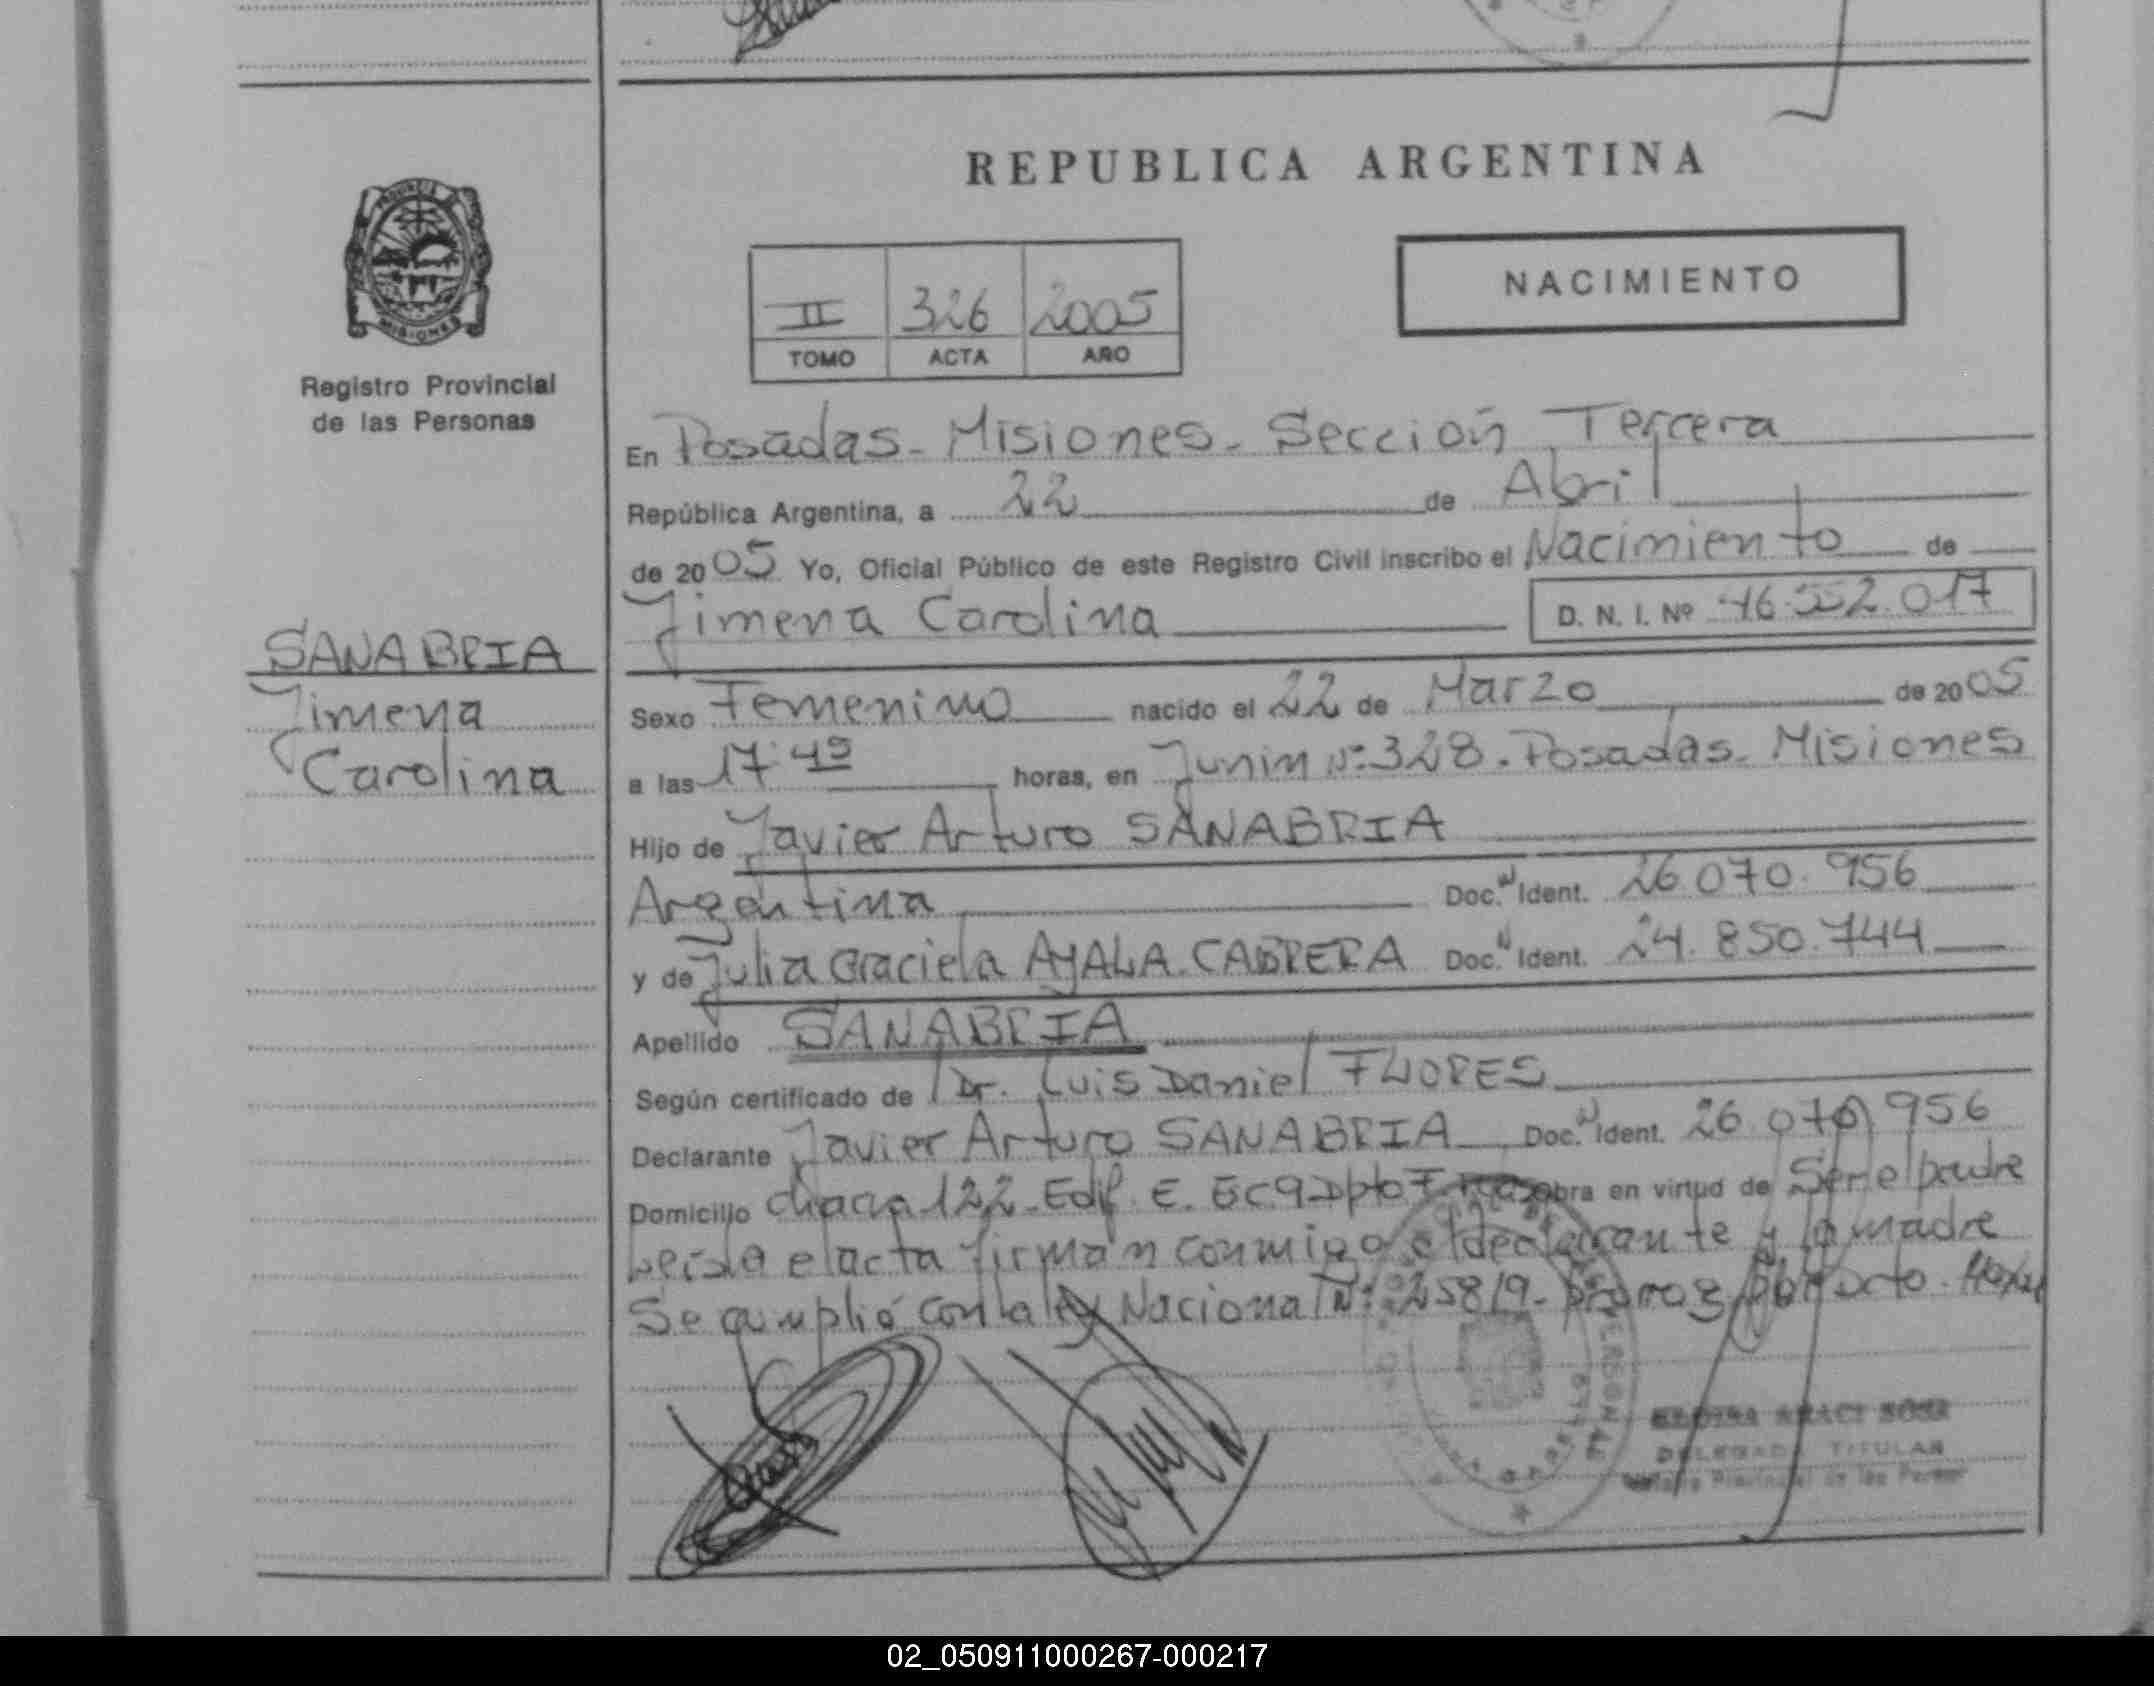 REPUBLICA ARGENTINA
PROVINCIA
MISIONES
Registro Provincial
de las Personas
NACIMIENTO
II 326 2005
TOMO ACTA AÑO
En Posadas - Misiones - Sección Tercera
República Argentina, a 22 de Abril
de 2005 Yo, Oficial Público de este Registro Civil inscribo el Nacimiento de
Jimena Carolina D. N. I. Nº 46.552.017
SANABRIA
Jimena
Carolina
Sexo Femenino nacido el 22 de Marzo de 2005
a las 17:45 horas, en Junin Nº 328. Posadas - Misiones
Hijo de Javier Arturo SANABRIA
Argentina Doc. N Ident. 26.070.956
y de Julia Graciela AYALA CABRERA Doc. N Ident. 24.850.744
Apellido SANABRIA
Según certificado de Dr. Luis Daniel FLORES
Declarante Javier Arturo SANABRIA Doc. N Ident. 26.070.956
Domicilio chacra 122 - Edif. E. Esc 9 Dpto F obra en virtud de Ser el padre
Leída el acta firman conmigo el declarante y la madre
Se cumplió con la ley Nacional Nº: 25819
ARACI SOSA
DELEGADA TITULAR
Registro Provincial de las Personas
02_050911000267-000217